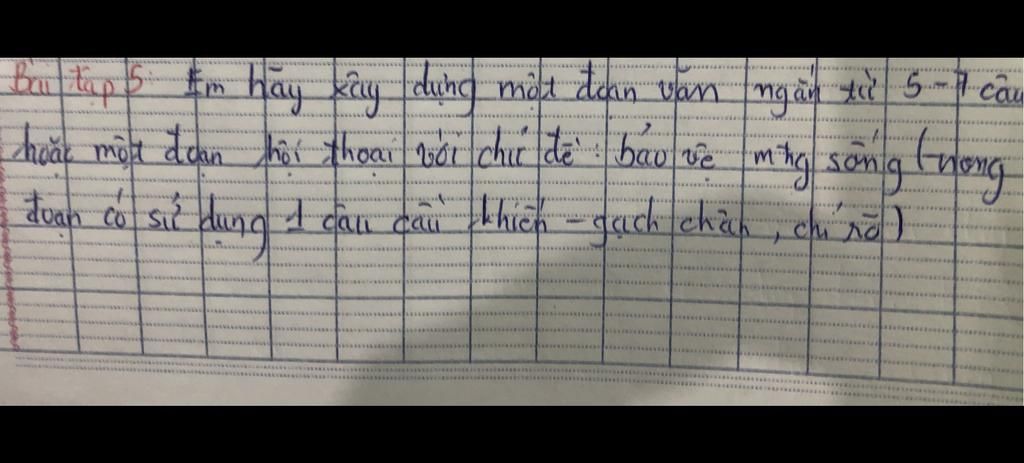 Bài tập 5: Em hãy xây dựng một đoạn văn ngắn từ 5-7 câu
hoặc một đoạn hội thoại với chủ đề: bảo vệ mtrg sống (trong
đoạn có sử dụng 1 câu cầu khiến - gạch chân, chỉ rõ)